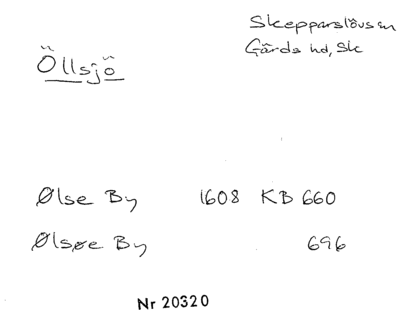 Skepparslövs sn
Gärds hd, Sk
Öllsjö
Ølse By 1608 KB 660
Ølsøe By 696
Nr 20320